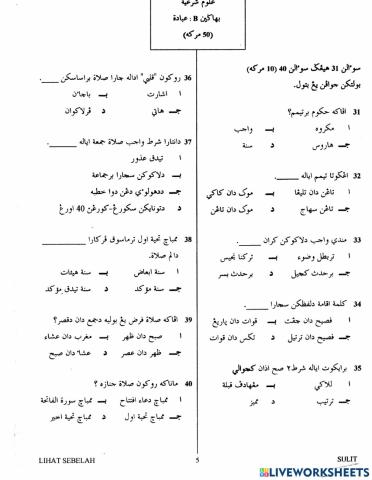 علوم شرعية
بهاݢين B : عبادة
(50 مركه)
سوءالن 31 هيڠݢ سوءالن 40 (10 مركه)
بولتكن جواڤن يڠ بتول.
31 اڤاكه حكوم برتيمم؟
ا مكروه ب واجب
جـ هاروس د سنة
32 اڠݢوتا تيمم اياله ______.
ا تاڠن دان تليڠا ب موك دان كاكي
جـ تاڠن سهاج د موك دان تاڠن
33 مندي واجب دلاكوكن كران ______.
ا تربطل وضوء ب تركنا نجيس
جـ برحدث كچيل د برحدث بسر
34 كلمة اقامة دلفظكن سچارا ______.
ا فصيح دان چڤت ب قوات دان ڽاريڠ
جـ فصيح دان ترتيل د تڬس دان قوات
35 برايكوت اياله شرط٢ صح اذان كچوالي
ا للاكي ب مڠهادڤ قبلة
جـ ترتيب د مميز
36 روكون "قلبي" اداله چارا صلاة براساسكن ______.
ا اشارت ب باچاءن
جـ هاتي د ڤرلاكوان
37 دانتارا شرط واجب صلاة جمعة اياله ______.
ا تيدق عذور
ب دلاكوكن سچارا برجماعة
جـ ددهولوءي دڠن دوا خطبه
د دتونايكن سكورڠ-كورڠڽ 40 اورڠ
38 ممباچ تحية اول ترماسوق ڤركارا ______
دالم صلاة.
ا سنة ابعاض ب سنة هيئات
جـ سنة مؤكد د سنة تيدق مؤكد
39 اڤاكه صلاة فرض يڠ بوليه دجمع دان دقصر؟
ا صبح دان ظهر ب مغرب دان عشاء
جـ ظهر دان عصر د عشاء دان صبح
40 ماناكه روكون صلاة جنازه ؟
ا ممباچ دعاء افتتاح ب ممباچ سورة الفاتحة
جـ ممباچ تحية اول د ممباچ تحية اخير
LIHAT SEBELAH
5
SULIT
LIVEWORKSHEETS